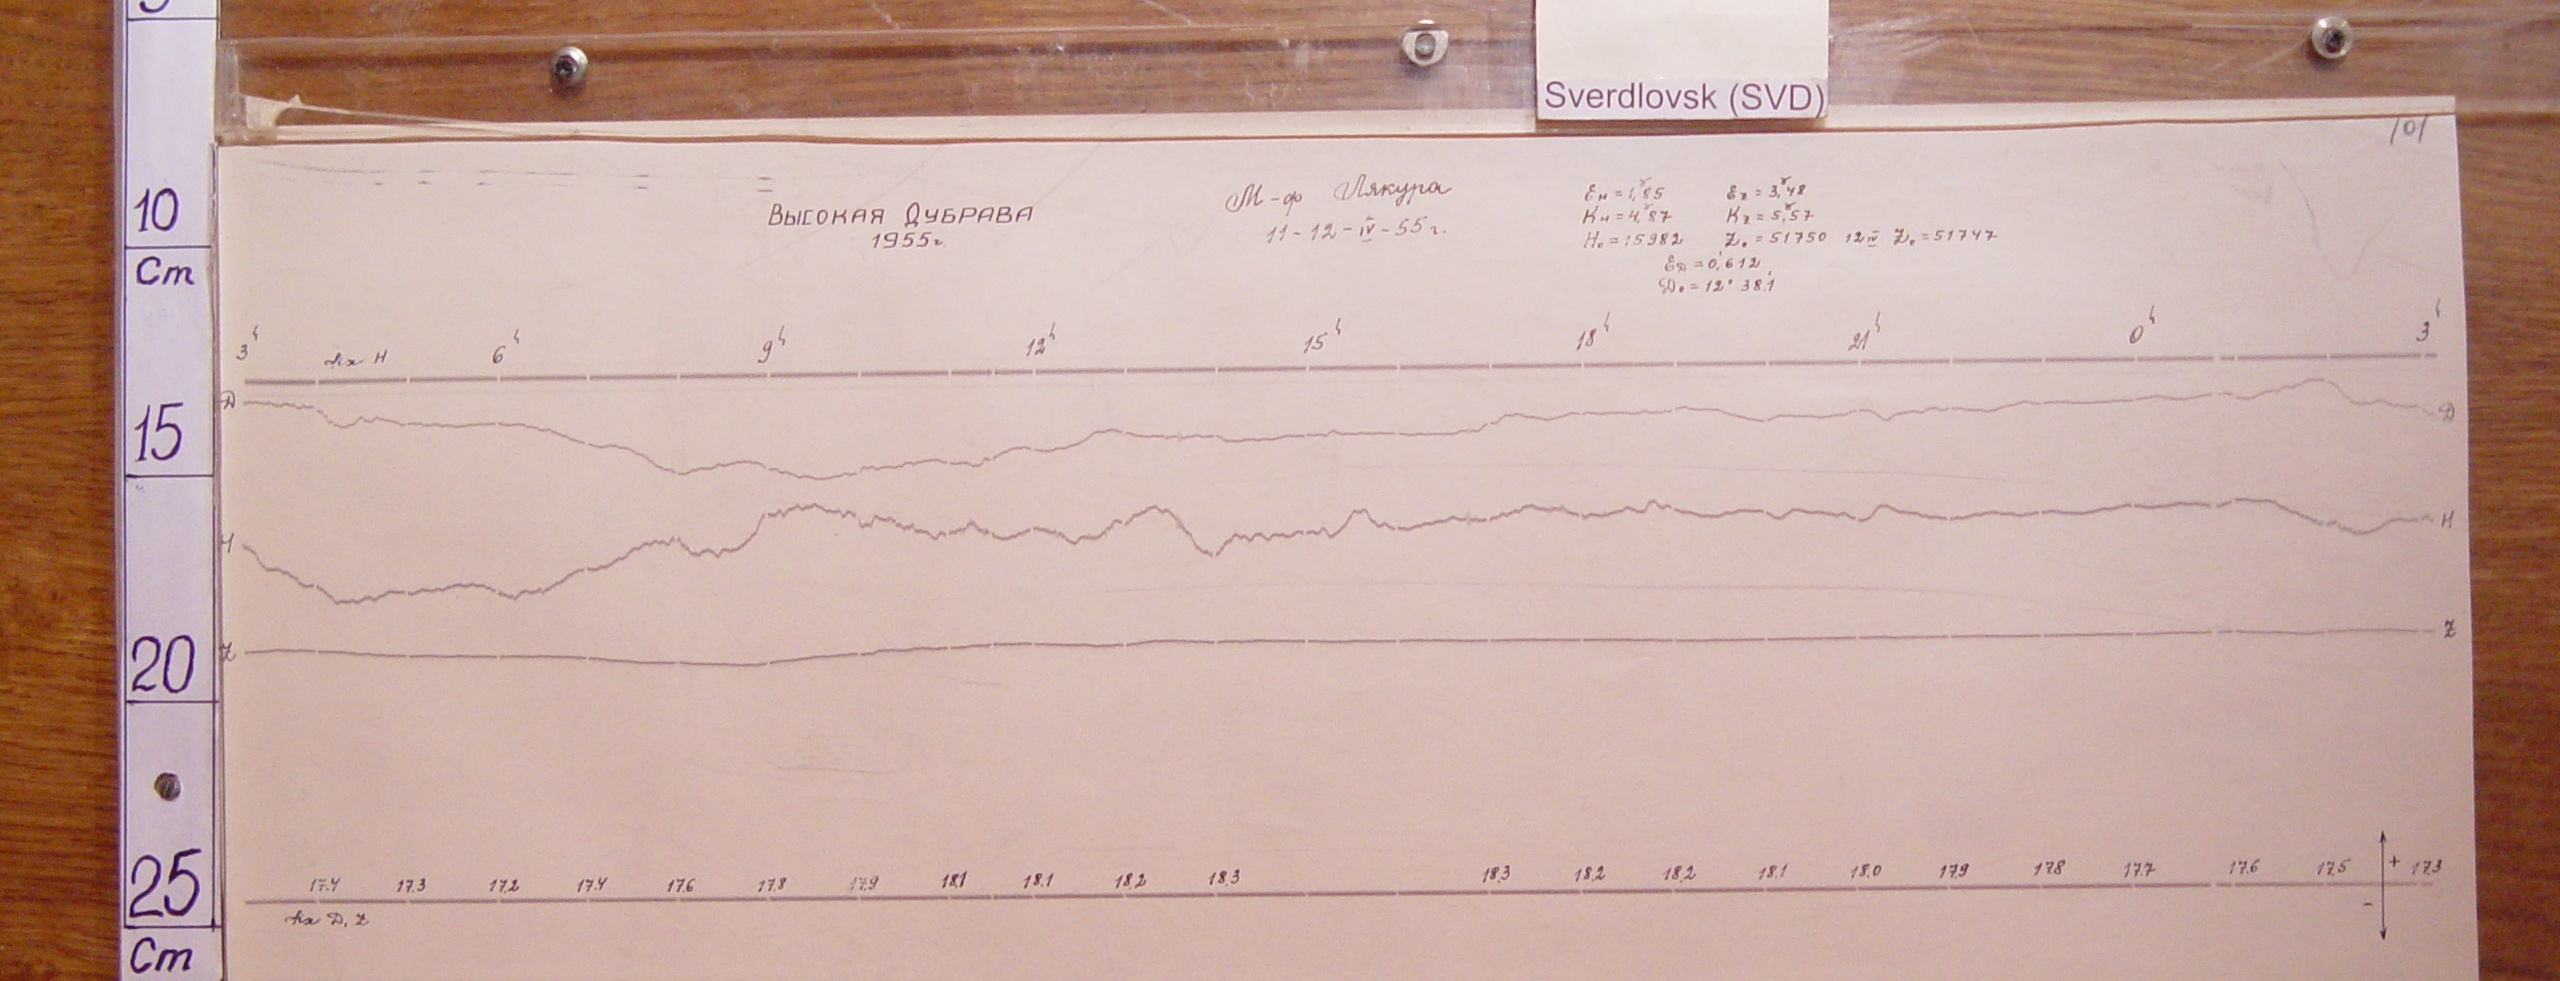 Sverdlovsk (SVD)
101
10
Cm
15
20
25
Cm
Высокая Дубрава
1955г.
М-ф Лякура
11-12-IV-55г.
Ен=1,85 Ez=3,48
Кн=4,87 Kz=5,57
H₀=15982 Z₀=51750 12 IV Z₀=51747
ED=0,612
D₀=12° 38,1
3ч 6ч 9ч 12ч 15ч 18ч 21ч 0ч 3ч
H
D D
H H
Z Z
17.4 17.3 17.2 17.4 17.6 17.8 17.9 18.1 18.1 18.2 18.3 18.3 18.2 18.2 18.1 18.0 17.9 17.8 17.7 17.6 17.5 + 17.3
-
D, Z